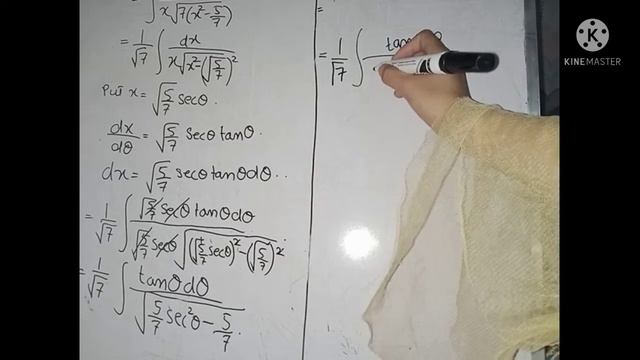 ∫ x√7(x²-5/7)
= 1/√7 ∫ dx / x√x²-(√5/7)²
Put x = √5/7 secθ
dx/dθ = √5/7 secθ tanθ.
dx = √5/7 secθ tanθ dθ..
= 1/√7 ∫ √5/7 secθ tanθ dθ / √5/7 secθ √(√5/7 secθ)² - (√5/7)²
= 1/√7 ∫ tanθ dθ / √5/7 sec²θ - 5/7.
=
= 1/√7 ∫ tan
KINEMASTER